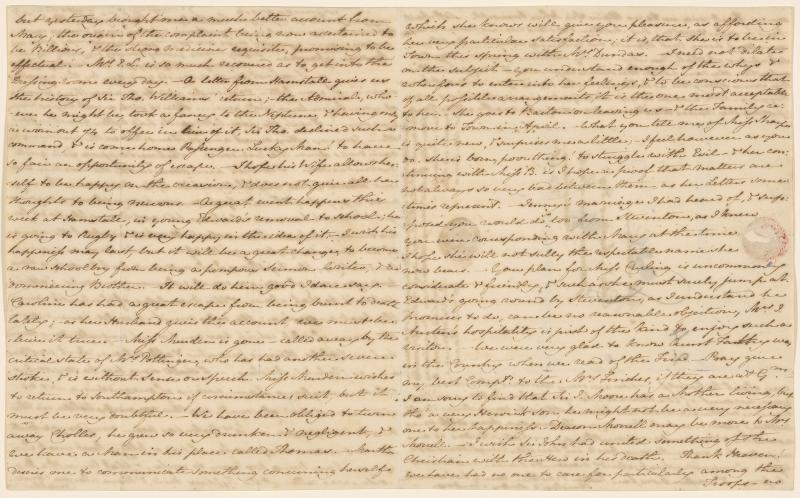 but yesterday brought me a much better account from
Mary, the origin of the complaint being now ascertained to
be Billious, & the strong medicines requisite, promising to be
effectual. — Mrs. E. L. is so much recovered as to get into the
Dressing-room every day. — A letter from Hamstall gives us
the history of Sir Tho. Williams' return; — the Admiral, who-
-ever he might be, took a fancy to the Neptune, & having only
a worn out 74 to offer in lieu of it, Sir Tho. declined such a
command, & is come home Passenger. Lucky Man! to have
so fair an opportunity of escape. — I hope his Wife allows her-
self to be happy on the occasion, & does not give all her
thoughts to being nervous. — A great event happens this
week at Hamstall, in young Edward's removal to School; he
is going to Rugby & is very happy in the idea of it. — I wish his
happiness may last, but it will be a great change, to become
a raw school boy from being a pompous Sermon-Writer, & a
domineering Brother. — It will do him good I dare say. —
Caroline has had a great escape from being burnt to death
lately; — as her Husband gives the account, we must be-
lieve it true. — Miss Murden is gone — called away by the
critical state of Mrs. Pottinger, who has had another severe
stroke, & is without Sense or Speech. Miss Murden wishes
to return to Southampton if circumstances suit, but it
must be very doubtful. — We have been obliged to turn
away Cholles, he grew so very drunken & negligent, &
we have a Man in his place called Thomas. — Martha
desires me to communicate something concerning herself
which she knows will give you pleasure, as affording
her very particular satisfaction; it is, that she is to be in
Town this spring with Mrs. Dundas. — I need not dilate
on the subject — you understand enough of the whys &
wherefores to enter into her feelings, & to be conscious that
of all possible arrangements, it is the one most acceptable
to her. — She goes to Barton on leaving us — & the Family re-
move to Town in April. — What you tell me of Miss Sharpe
is quite new, & surprises me a little; — I feel however as you
do. She is born, poor thing! to struggle with Evil — & her con-
tinuing with Miss B. is I hope a proof that matters are
not always so very bad between them, as her Letters some-
times represent. — Jenny's marriage I had heard of, & sup-
posed you would do so too from Steventon, as I knew
you were corresponding with Mary at the time.
I hope she will not sully the respectable name she
now bears. — Your plan for Miss Curling is uncommonly
considerate & friendly, & such as she must surely jump at.
Edward's going round by Steventon, as I understand he
promises to do, can be no reasonable objection, Mrs. J.
Austen's hospitality is just of the kind to enjoy such a
visitor. — We were very glad to know Aunt Fatty was
in the Country when we read of the Fire. — Pray give
my best Compts. to the Mrs. Finches, if they are at Gm.
I am sorry to find that Sir J. Moore has a Mother living, but
tho' a very Heroick son, he might not be a very necessary
one to her happiness. — Deacon Morrell may be more to Mrs.
Morrell. — I wish Sir John had united something of the
Christian with the Hero in his death. — Thank Heaven!
we have had no one to care for particularly among the
Troops — no